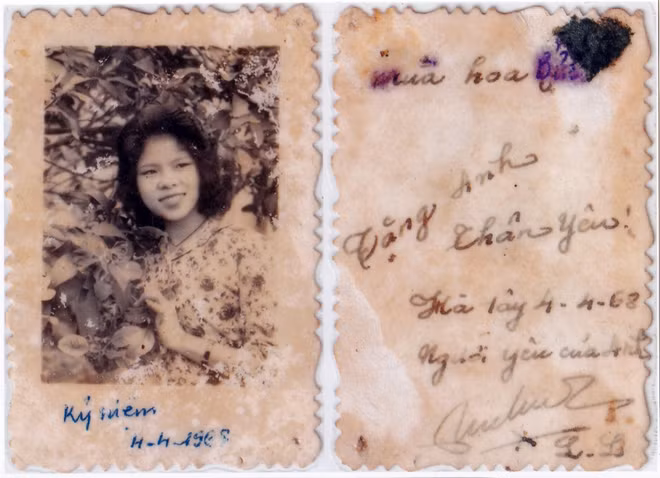 Kỷ niệm
4-4-1968
mùa hoa
Tặng Anh
Thân Yêu!
Hà Tây 4-4-68
Người yêu của Anh
L.L